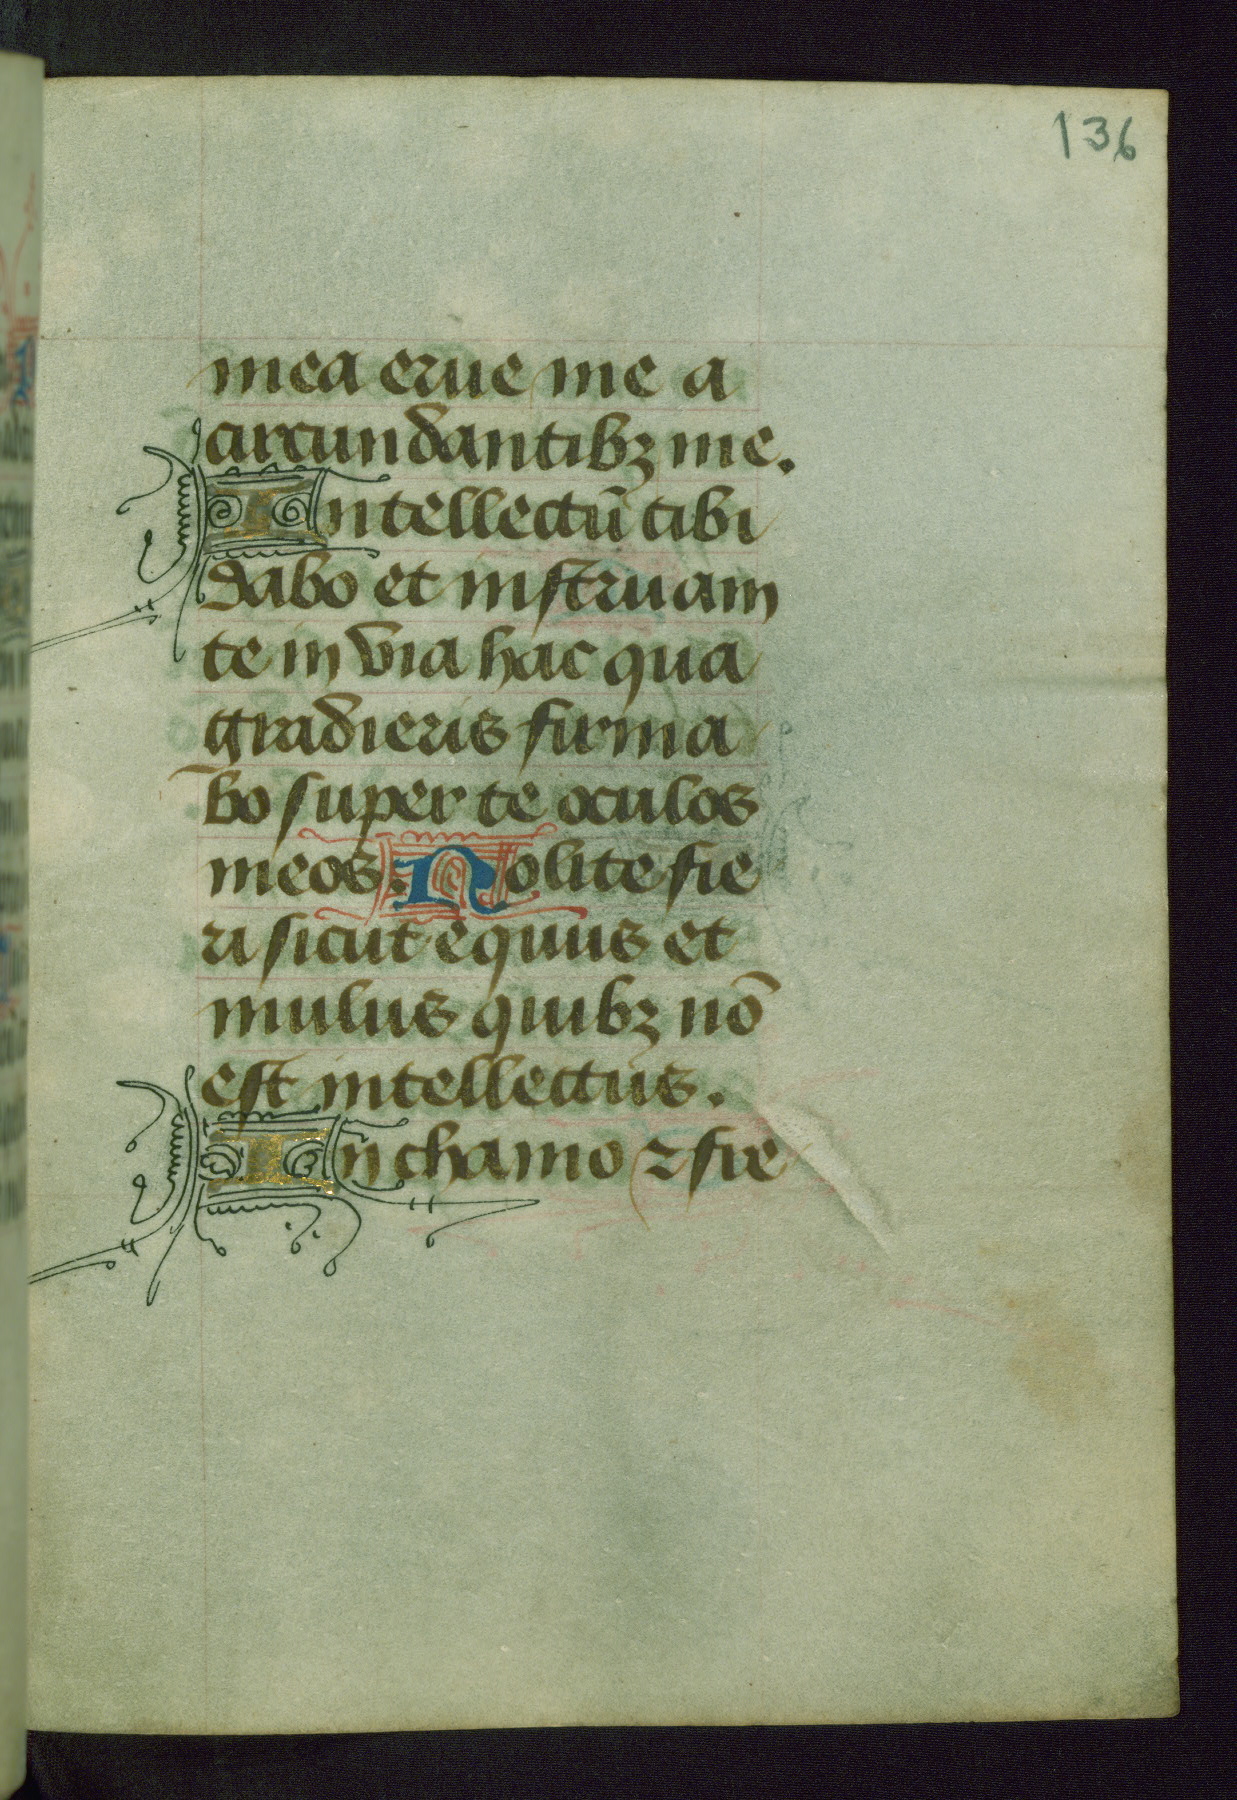 136
mea erue me a
circundantibꝫ me.
Intellectū tibi
dabo et instruam
te in via hac qua
gradieris firma
bo super te oculos
meos. Nolite fie
ri sicut equus et
mulus quibꝫ nō
est intellectus.
In chamo ⁊ fre